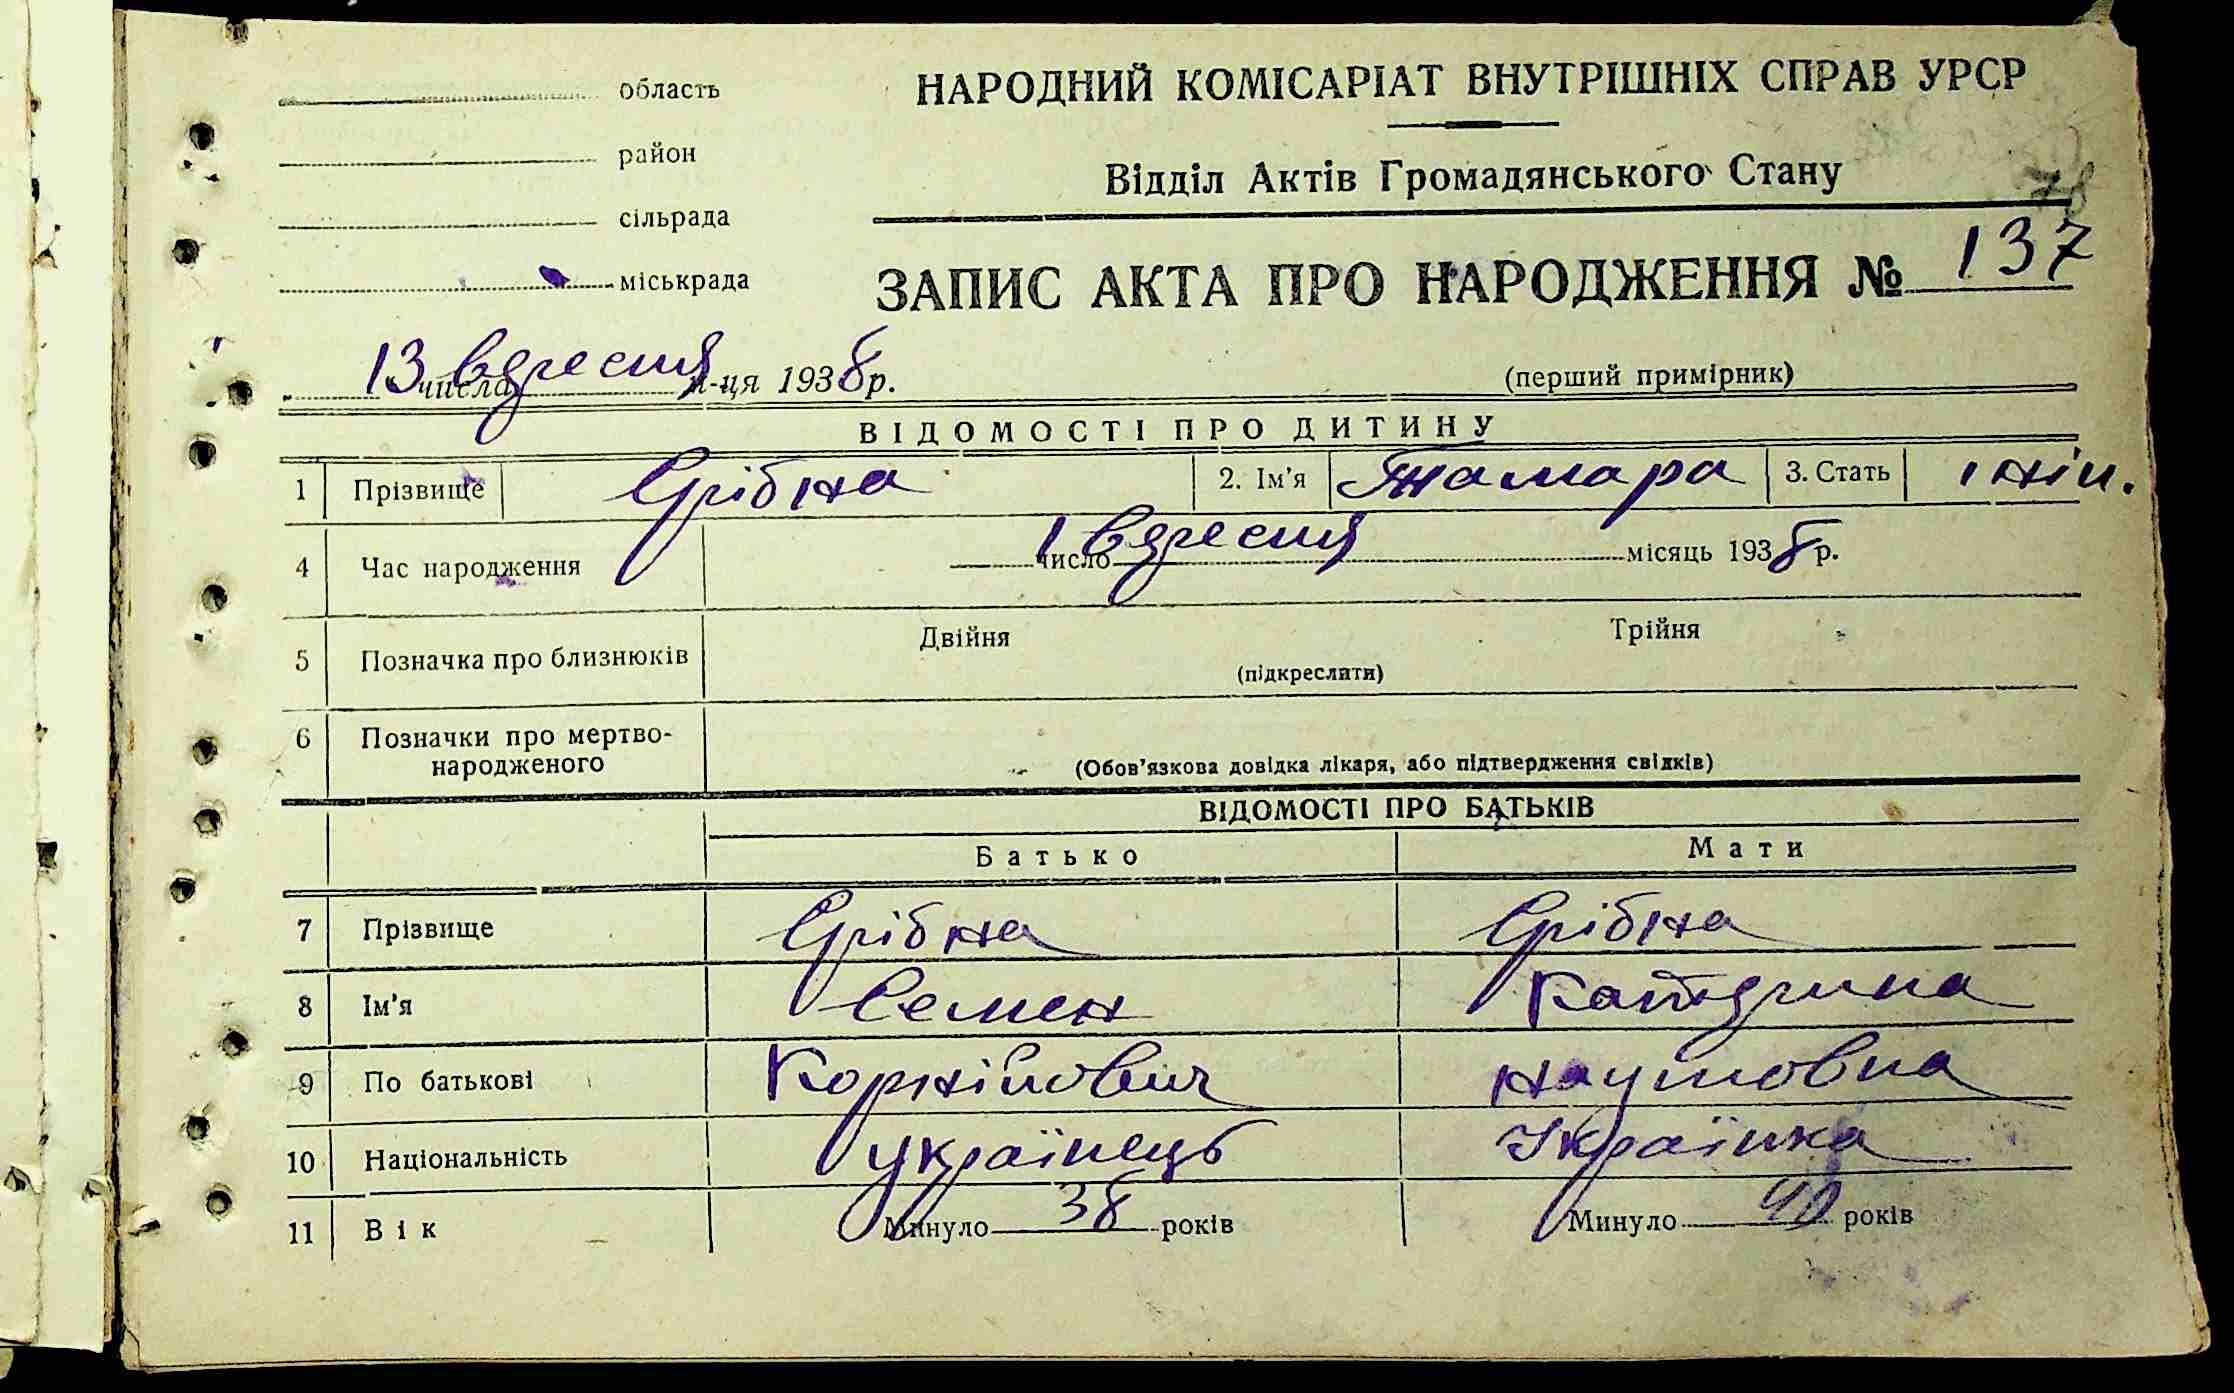 область
НАРОДНИЙ КОМІСАРІАТ ВНУТРІШНІХ СПРАВ УРСР
район
Відділ Актів Громадянського Стану
78
сільрада
міськрада
ЗАПИС АКТА ПРО НАРОДЖЕННЯ № 137
13 числа вересня м-ця 1938 р.
(перший примірник)
ВІДОМОСТІ ПРО ДИТИНУ
1 Прізвище Срібна 2. Ім'я Тамара 3. Стать жін.
4 Час народження 1 число вересня місяць 1938 р.
5 Позначка про близнюків Двійня Трійня
(підкреслити)
6 Позначки про мертво-
народженого
(Обов'язкова довідка лікаря, або підтвердження свідків)
ВІДОМОСТІ ПРО БАТЬКІВ
Батько Мати
7 Прізвище Срібна Срібна
8 Ім'я Семен Катерина
9 По батькові Корнійович Наумовна
10 Національність українець Українка
11 Вік Минуло 38 років Минуло 40 років